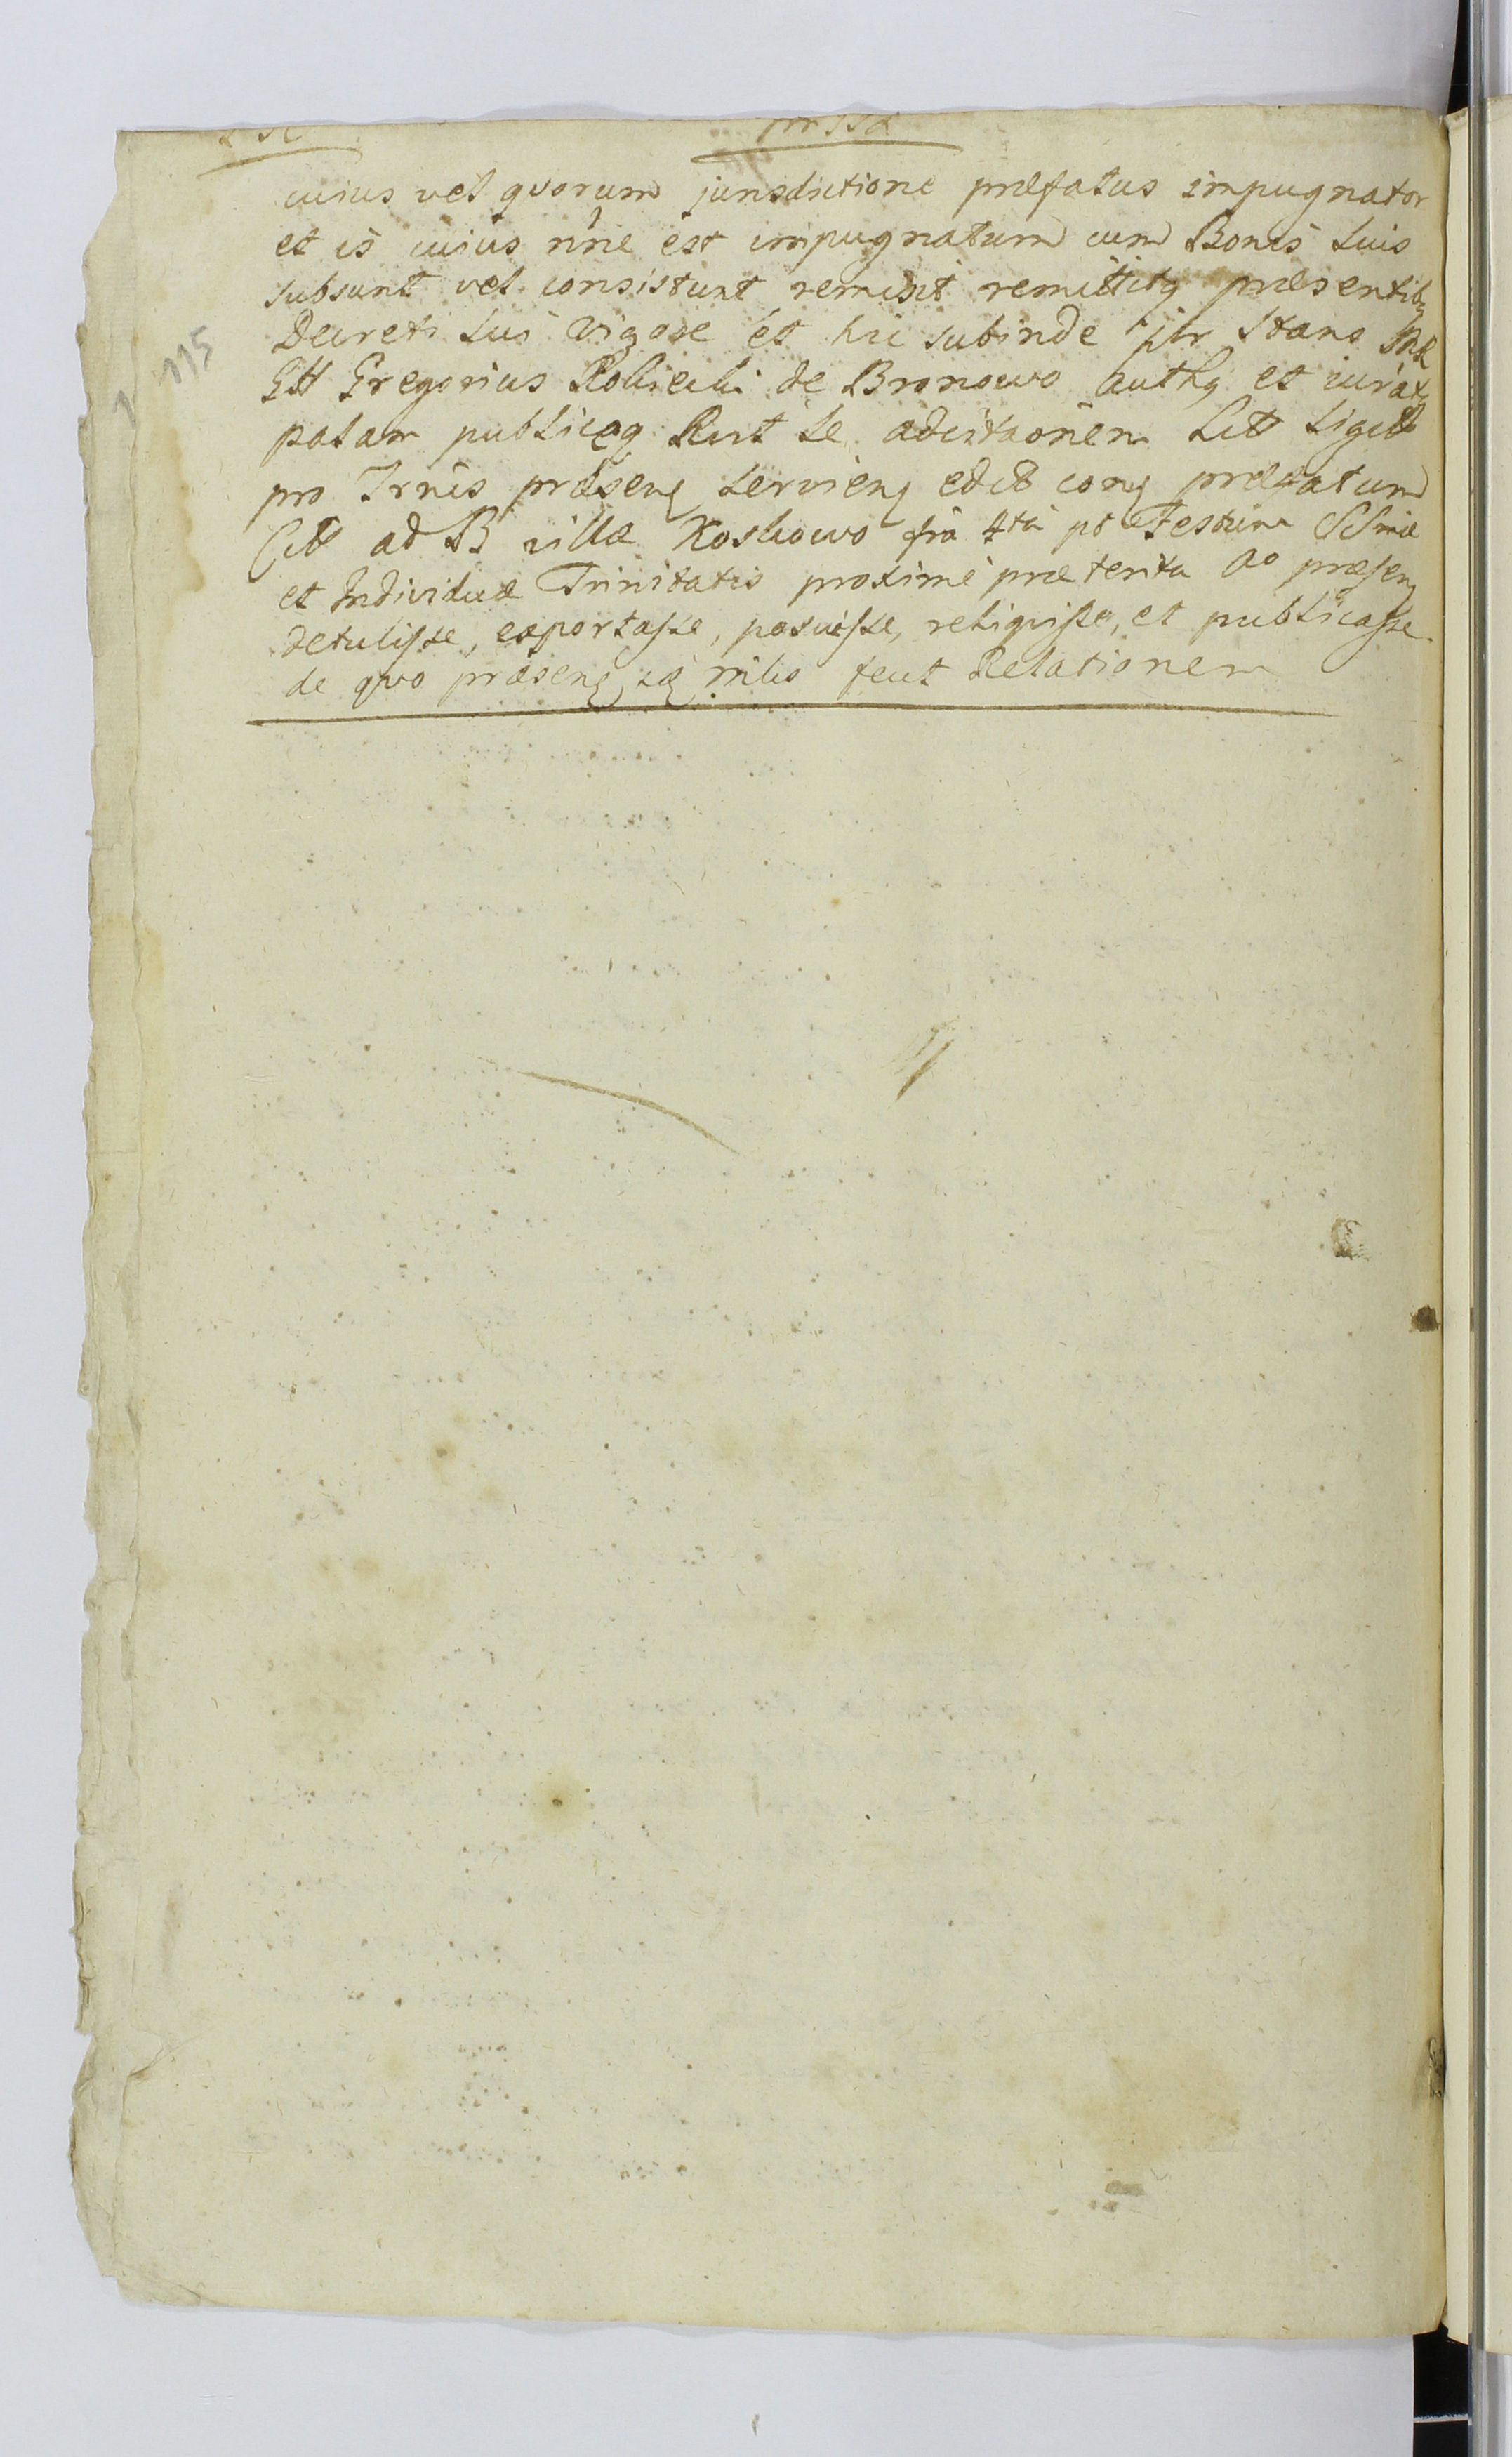 115
cuius vel qvorum jurisdictione præfatus impugnator
et is cuius nne est impugnatum cum Bonis suis
subsunt vel consistunt remisit remittitq præsentibq
Decreti sui vigore et hic subinde plr stans
GH Gregorius de Bronowo authq et iuratq
palam publiceq Rect se adcitaonem Litt Sigill
pro Trnis præsenq servienq edit conq præfatum
Citt ad B villæ Koskowo fia 4ta pt Festum SSmæ
et Individuæ Trinitatis proxime præterita Ao præsenq
detulisse, exportasse, posuisse, reliquisse, et publicasse
de qvo præsenq suaq mlis fecit Relationem